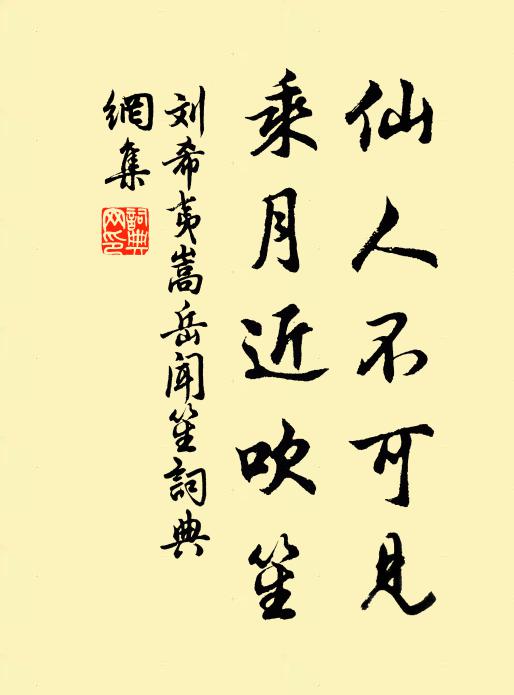 仙人不可見
乘月近吹笙
刘希夷嵩岳闻笙詞典
網集
詞典網印